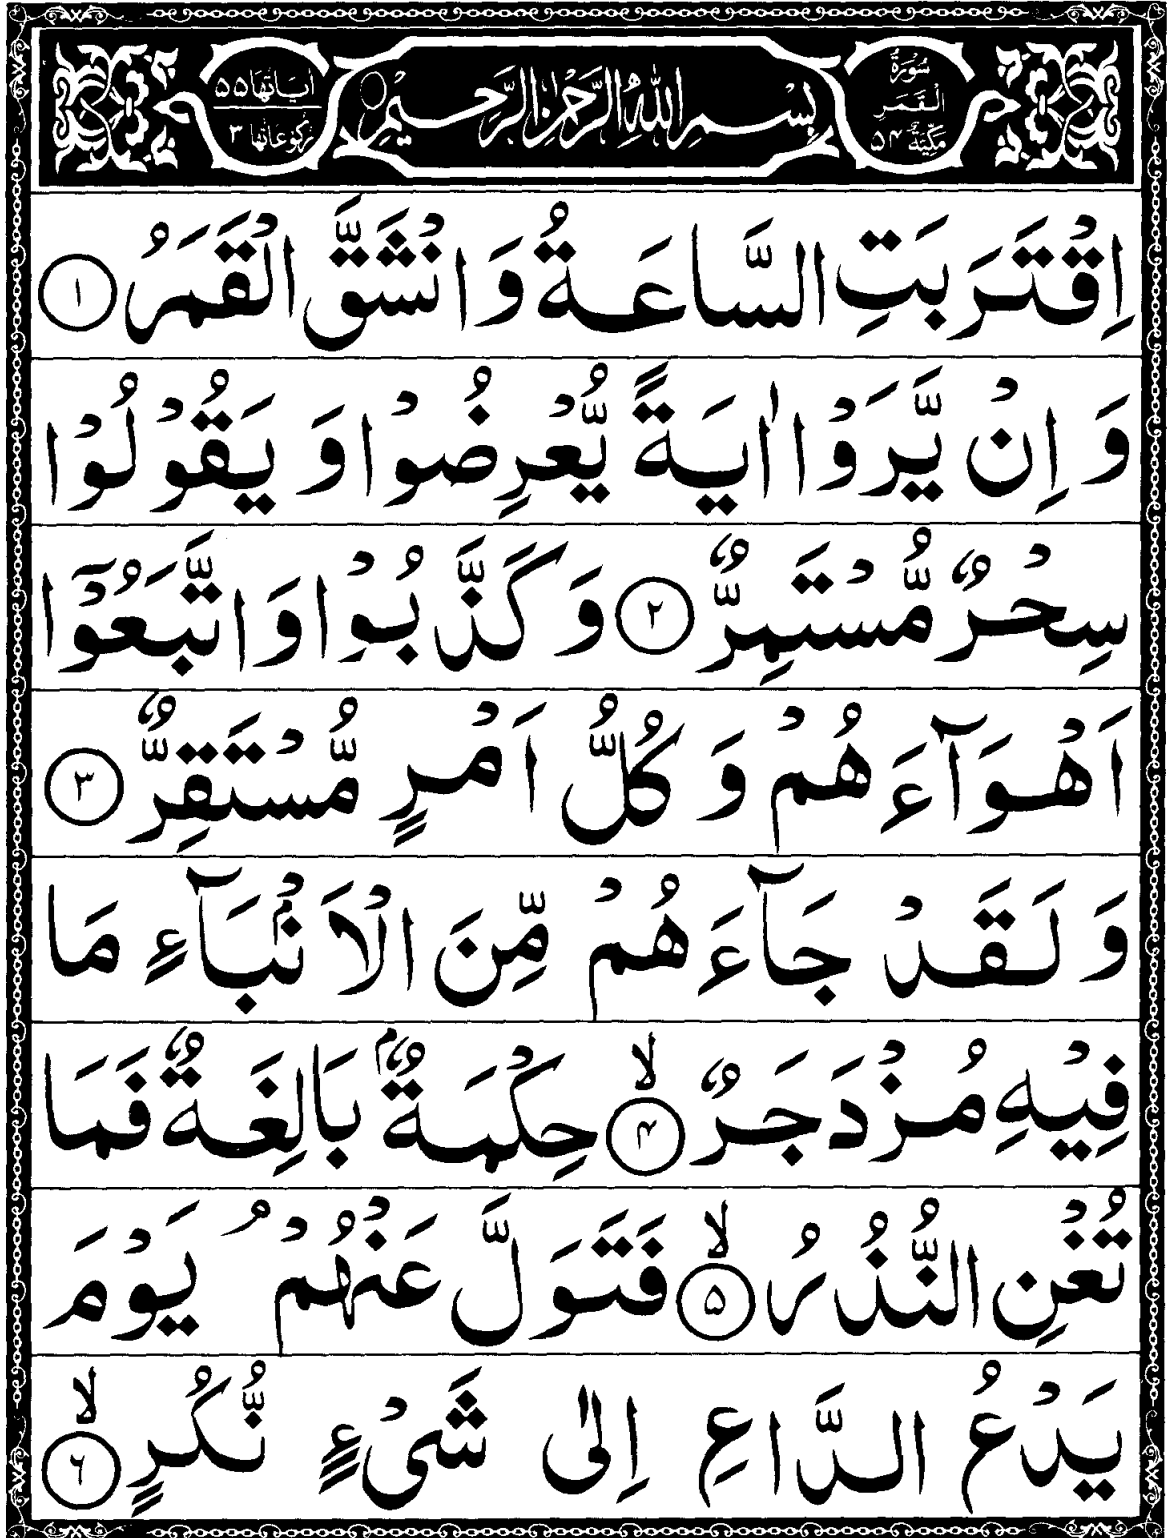 سُوْرَةُ
الْقَمَرِ
مَكِّيَّةٌ ۵۴
بِسْمِ اللهِ الرَّحْمٰنِ الرَّحِيْمِ
اٰيَاتُهَا ۵۵
رُكُوْعَاتُهَا ۳
اِقْتَرَبَتِ السَّاعَةُ وَانْشَقَّ الْقَمَرُ ۱
وَاِنْ يَّرَوْا اٰيَةً يُّعْرِضُوْا وَ يَقُوْلُوْا
سِحْرٌ مُّسْتَمِرٌّ ۲ وَكَذَّبُوْا وَاتَّبَعُوْٓا
اَهْوَآءَهُمْ وَ كُلُّ اَمْرٍ مُّسْتَقِرٌّ ۳
وَلَقَدْ جَآءَهُمْ مِّنَ الْاَنْۢبَآءِ مَا
فِيْهِ مُزْدَجَرٌ ۴ۙ حِكْمَةٌۢ بَالِغَةٌ فَمَا
تُغْنِ النُّذُرُ ۵ۙ فَتَوَلَّ عَنْهُمْ ۘ يَوْمَ
يَدْعُ الدَّاعِ اِلٰى شَىْءٍ نُّكُرٍ ۶ۙ